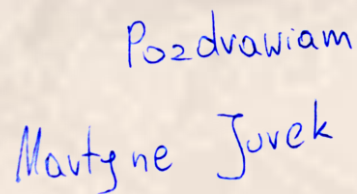 Pozdrawiam
Martyne Jurek